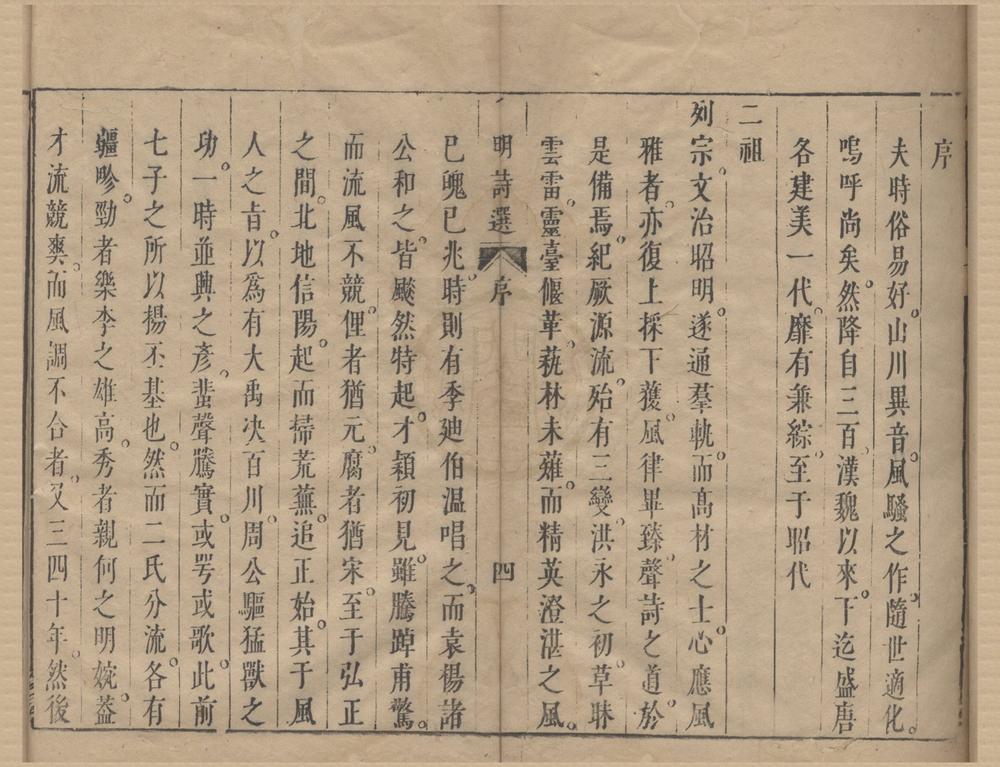 序
夫時俗易好。山川異音。風騷之作。隨世適化。
嗚呼尚矣。然降自三百漢魏以來。下迄盛唐
各建美一代。靡有兼綜。至于昭代
二祖
列宗。文治昭明。遂通羣軌。而高材之士。心應風
雅者。亦復上採下蒦。風律畢臻。聲詩之道。於
是備焉。紀厥源流。殆有三變。洪永之初。草昧
雲雷。靈臺偃革。蓺林未薙。而精英澄湛之風。
明詩選 序 四
已魄已兆。時則有季廸伯溫唱之。而袁楊諸
公和之。皆飈然特起。才穎初見。雖騰踔甫驚。
而流風不競。俚者猶元。腐者猶宋。至于弘正
之間。北地信陽。起而掃荒蕪。追正始。其于風
人之旨。以爲有大禹決百川。周公驅猛獸之
功。一時並興之彥。蜚聲騰實。或咢或歌。此前
七子之所以楊丕基也。然而二氏分流。各有
疆畛。勁者樂李之雄高。秀者親何之明婉。葢
才流競爽。而風調不合者。又三四十年。然後